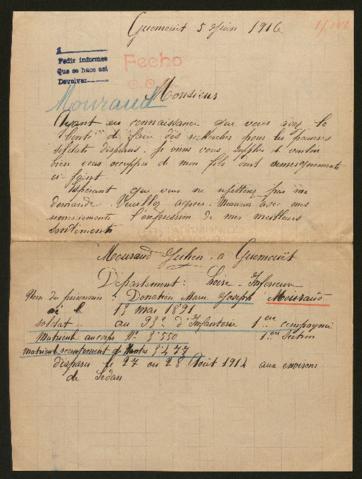 Guemené 5 Juin 1916
Pedir informes
Que se hace asi
Devolver
Fecho
Mouraud
Monsieur
Ayant eu connaissance que vous avez la
bonté de faire des recherches pour les pauvres
soldats disparus, je viens vous
bien vous occuper de mon fils dont renseignements
ci joint
Espérant que vous ne rejetterez pas ma
demande. Veuillez agréer Monsieur avec mes
remerciements l'expression de mes meilleurs
sentiments
Mouraud Julien, à Guemené
Département: Loire-Inférieure
Donatien Marie Joseph Mouraud
né le 13 mai 1891
soldat au 93e d'Infanterie 1ere compagnie
Matricule au corps No 5550 1ere Section
disparu le 27 ou 28 Août 1914 aux environs
de Sedan